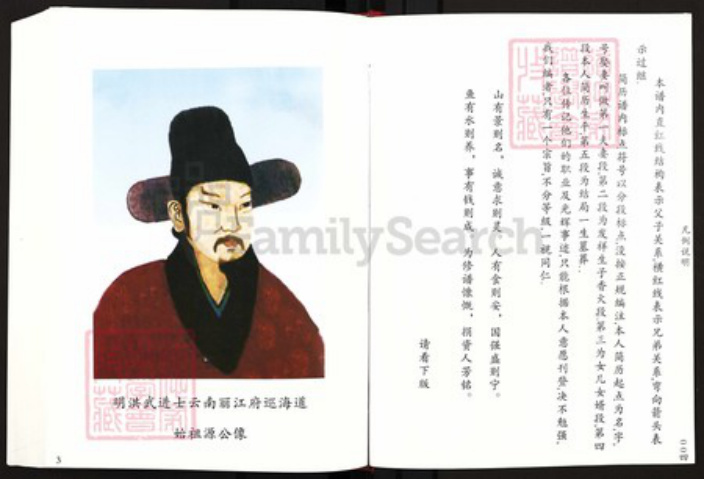 明洪武进士云南丽江府巡海道
始祖源公像
3
凡例说明
〇〇四
本谱内直红线结构表示父子关系,横红线表示兄弟关系,弯向箭头表
示过继.
简历谱内标点符号以分段标点,没按正规编注,本人简历起点为名,字,
号娶妻叫做第一人妻段,第二段为发祥生子香火段,第三为女儿女婿段,第四
段本人简历生平,第五段为结局一生墓葬.
各位传记他们的职业及光辉事迹,只能根据本人意愿刊登,决不勉强,
我们编者只有一个宗旨,不分等级,一视同仁.
山有景则名,诚意求则灵,人有食则安,国强盛则宁。
鱼有水则养,事有钱则成,为修谱慷慨,捐资人芳铭。
请看下版
FamilySearch